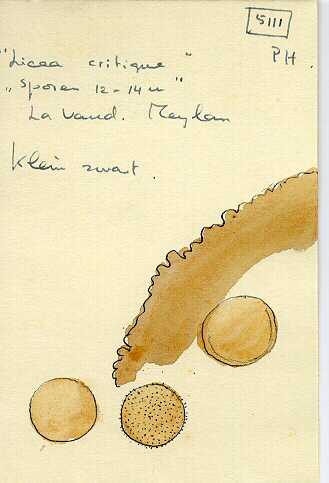 5111
PH.
"Licea critique"
"Sporen 12-14 u"
La Vaud. Meylan
Klein zwart.